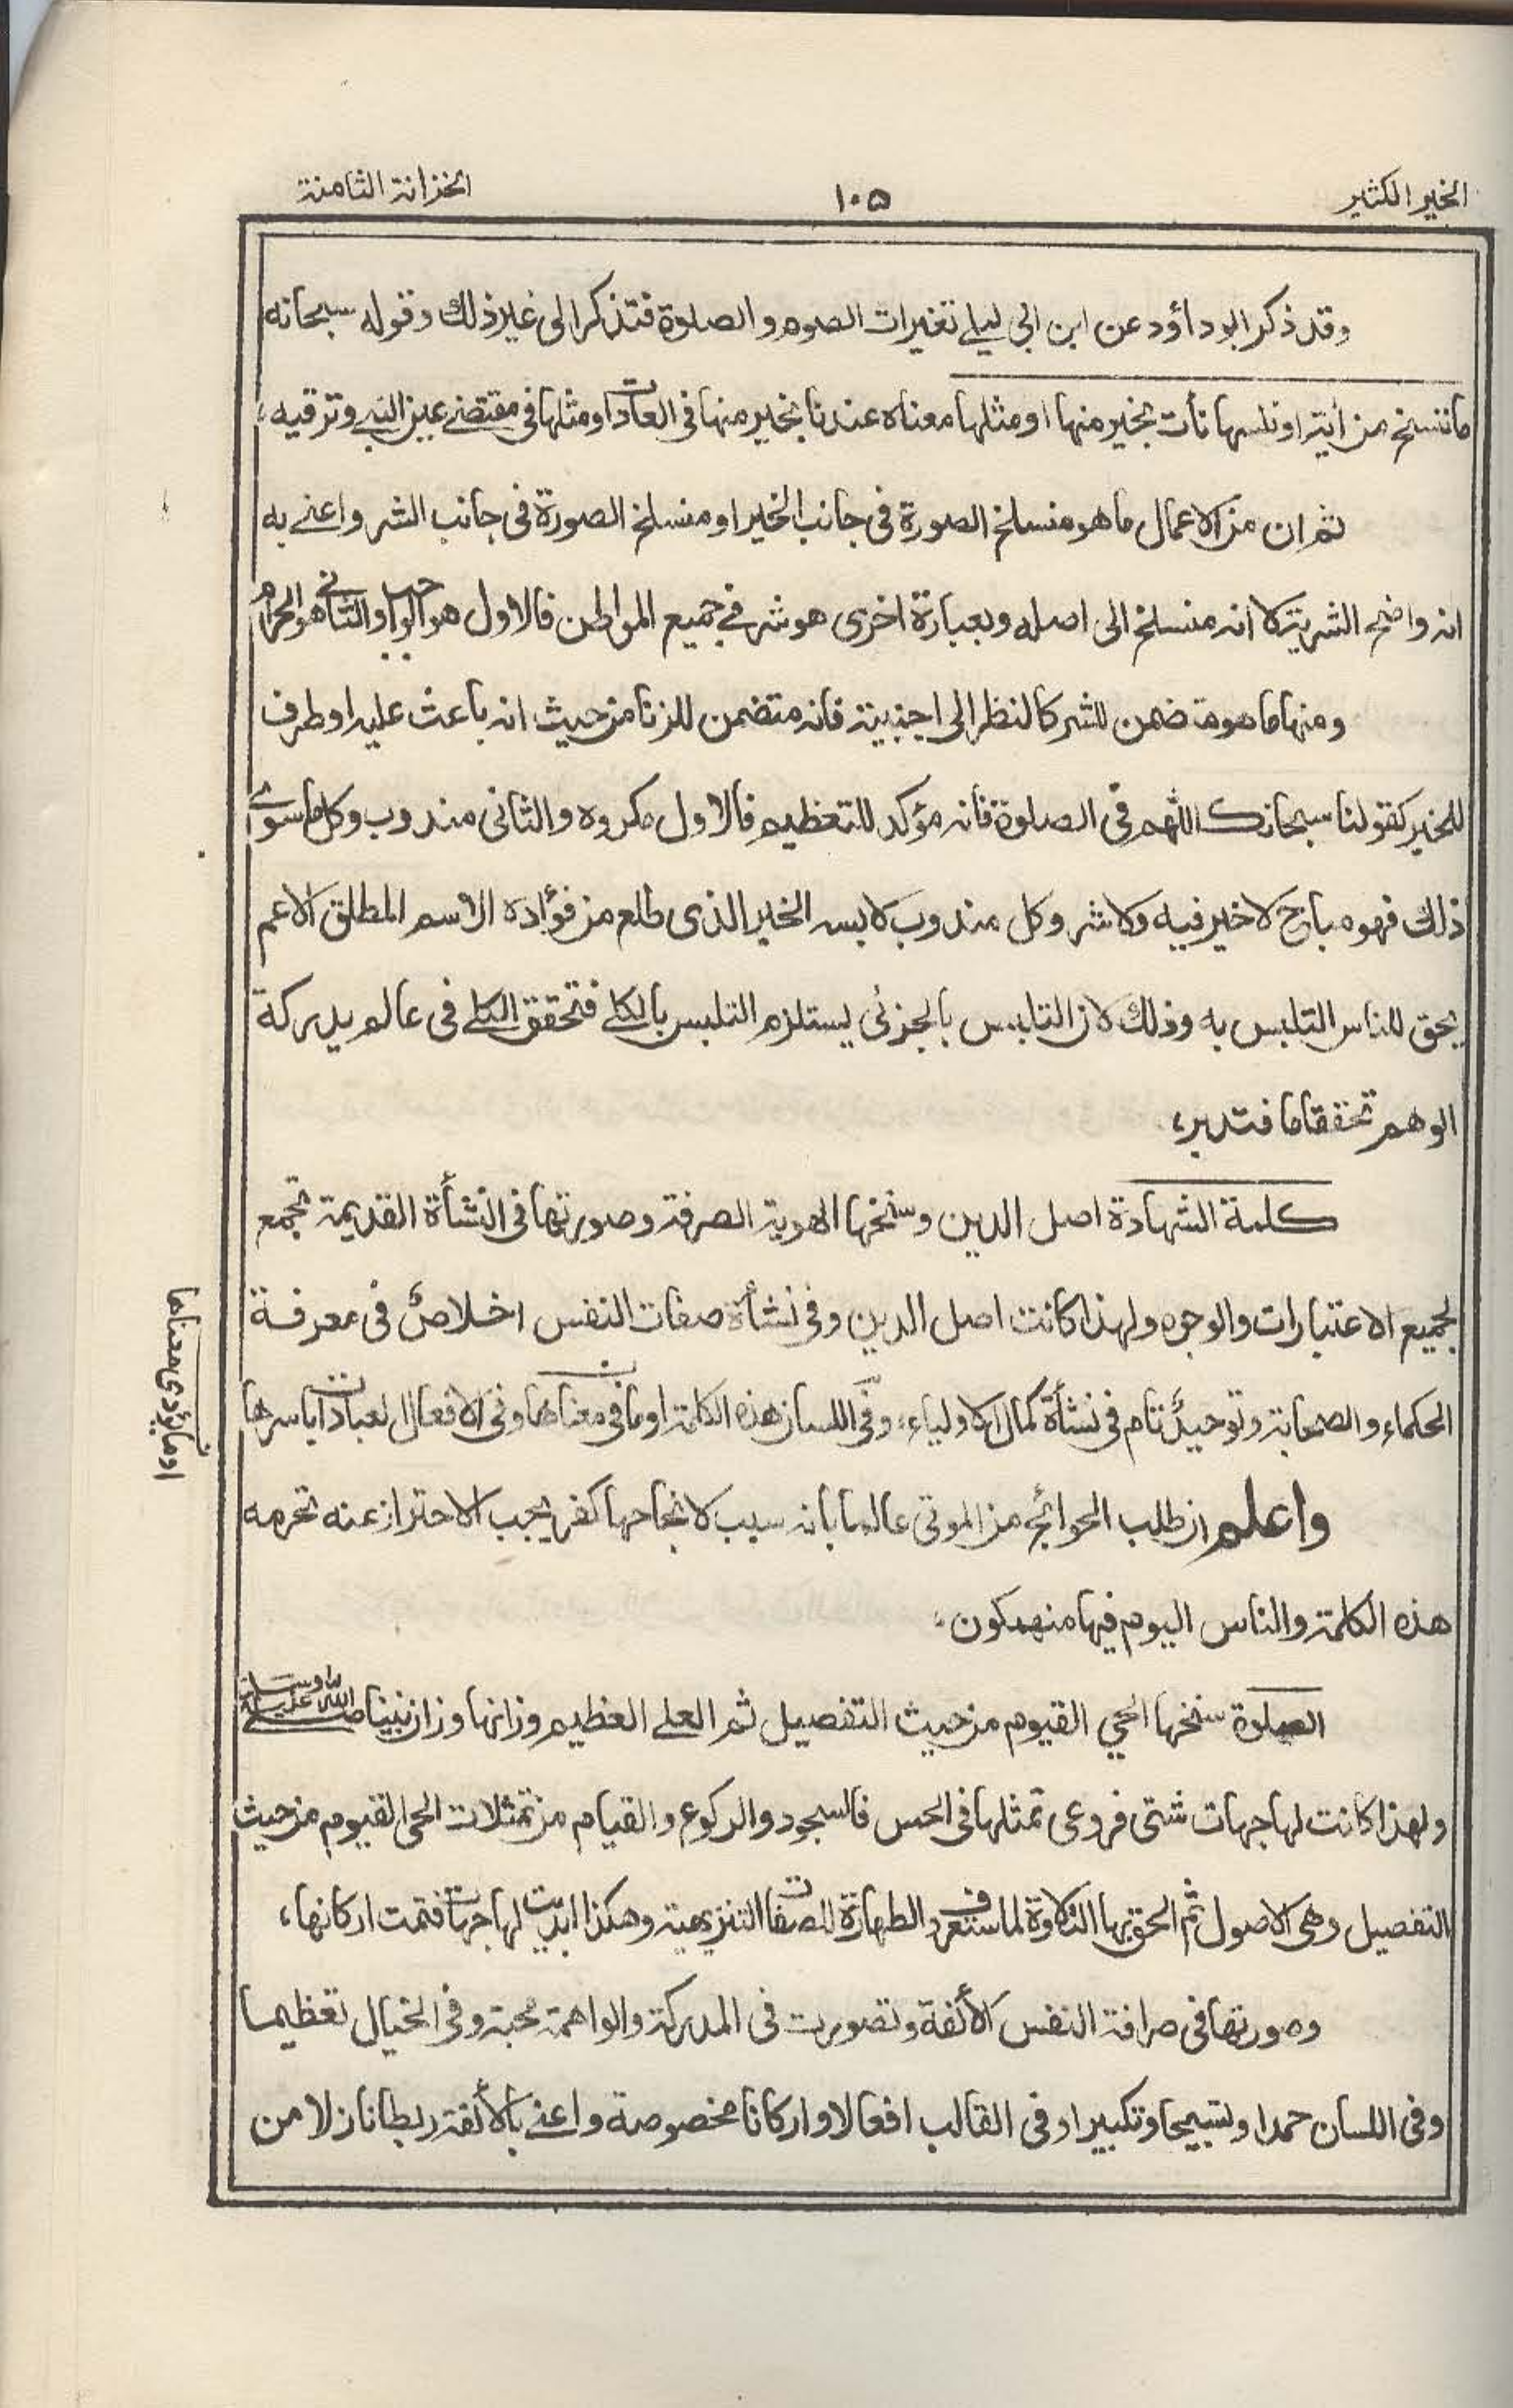 الخير الكثير
١٠٥
الخزانة الثامنة
وقد ذكر ابو داؤد عن ابن ابى ليلے تغيرات الصوم والصلوة فتذكر الى غير ذلك وقوله سبحانه
ما ننسخ من أية او ننسها نأت بخير منها او مثلها معناه عندنا بخير منها فى العادات او مثلها فى مقتضے عين النبے وترقيه،
ثم ان من الاعمال ما هو منسلخ الصورة فى جانب الخير او منسلخ الصورة فى جانب الشر واعنے به
انه واضح الشرية لا انه منسلخ الى اصله وبعبارة اخرى هو شر فے جميع المواطن فالاول هو الواجب والثانے هو الحرام
ومنها ما هو متضمن للشر كالنظر الى اجنبية فانه متضمن للزنا من حيث انه باعث عليه او طرف
للخير كقولنا سبحانك اللهم فى الصلوة فانه مؤكد للتعظيم فالاول مكروه والثانى مندوب وكل ما سوى
ذلك فهو مباح لا خير فيه ولا شر وكل مندوب لابس الخير الذى طلع من فؤاده الاسم المطلق الاعم
يحق للناس التلبس به وذلك لان التلبس بالجزئى يستلزم التلبس بالكلے فتحقق الكلے فى عالم يدركة
الوهم تحققا ما فتدبر،
كلمة الشهادة اصل الدين وسنخها الهوية الصرفة وصورتها فى النشأة القديمة تجمع
لجميع الاعتبارات والوجوه ولهذا كانت اصل الدين وفى نشأة صفات النفس اخلاصٌ فى معرفة
الحكماء والصحابة وتوحيدٌ تام فى نشأة كمال الاولياء، وفى اللسان هذه الكلمة او ما فى معناها وفى الافعال العبادات باسرها
او ما يؤدى معناها
واعلم ان طلب الحوائج من الموتى عالما بانه سبب لانجاحها كفر يجب الاحتراز عنه تحرمه
هذه الكلمة والناس اليوم فيها منهمكون،
الصلوة سنخها الحي القيوم من حيث التفصيل ثم العلے العظيم وزانها وزان نبينا صلے الله عليه وسلم
ولهذا كانت لها جهات شتى فروعى تمثلها فى الحس فالسجود والركوع والقيام من تمثلات الحى القيوم من حيث
التفصيل وهى الاصول ثم الحق بها التلاوة لما ستعرف والطهارة للصفات التنزيهية وهكذا ابدت لها جهات فتمت اركانها،
وصورتها فى صرافة النفس الألفة وتصورت فى المدركة والواهمة محبة وفى الخيال تعظيما
وفى اللسان حمدا وتسبيحا وتكبيرا وفى القالب افعالا واركانا مخصوصة واعنے بالألفة ربطا نازلا من